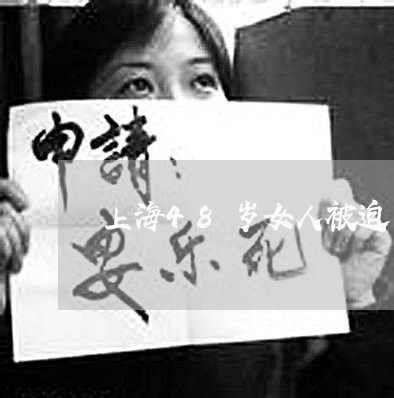 申請：
上海48岁女人被迫
要乐死